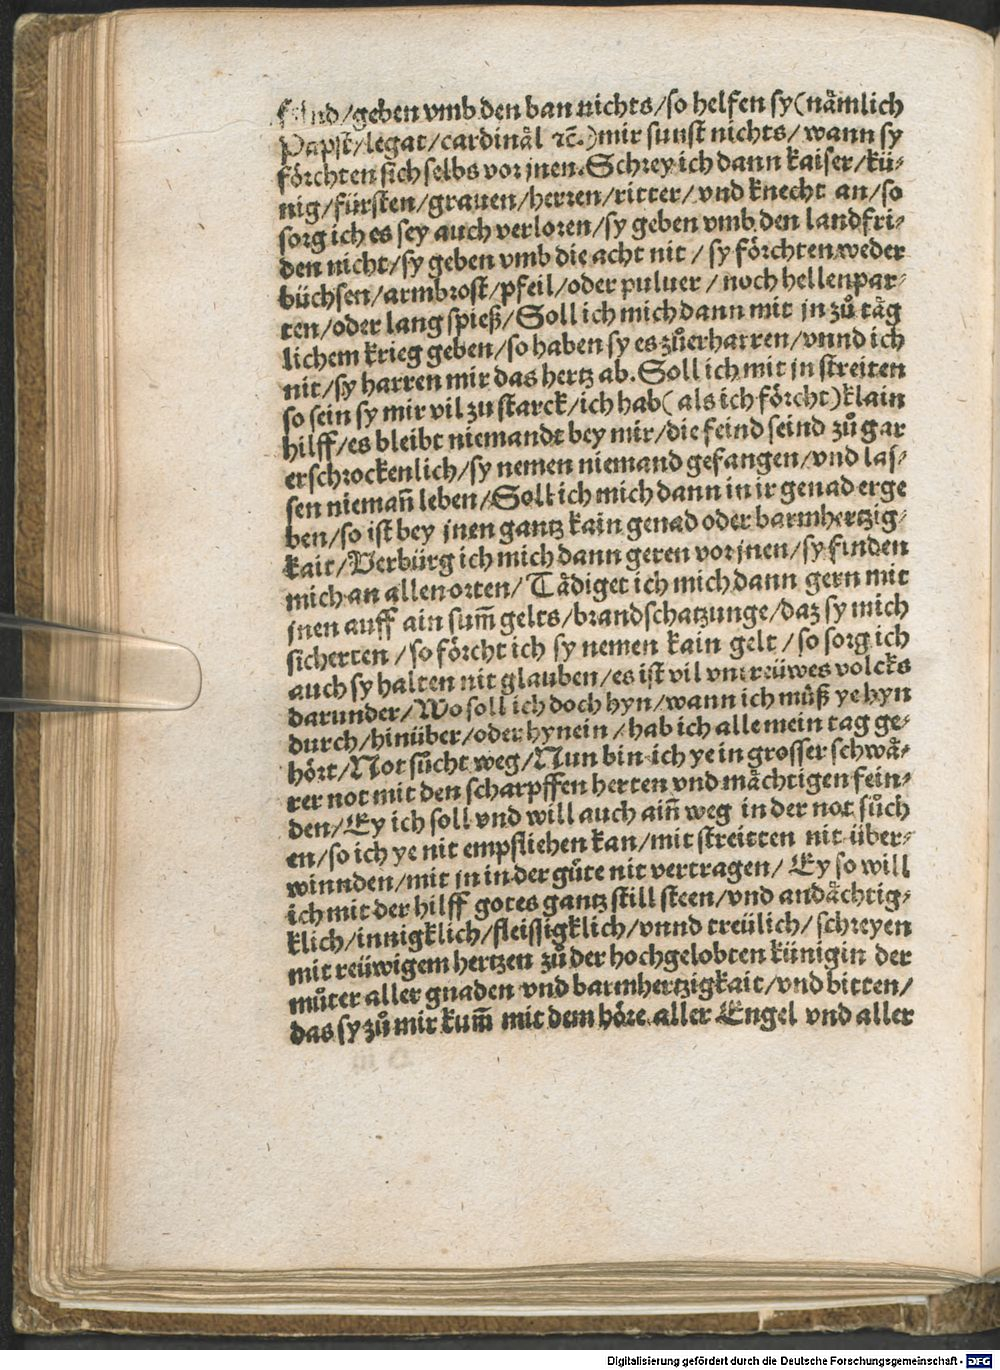 feind/geben vmb den ban nichts/so helfen sy(nämlich
Papst/legat/cardinäl ⁊c̄.)mir sunst nichts/wann sy
förchten sich selbs vor jnen. Schrey ich dann kaiser/kü-
nig/fürsten/grauen/herren/ritter/vnd knecht an/so
sorg ich es sey auch verloren/sy geben vmb den landfri-
den nicht/sy geben vmb die acht nit/sy förchten weder
büchsen/armbrost/pfeil/oder puluer/noch hellenpar-
ten/oder lang spieß/Soll ich mich dann mit jn zů täg
lichem krieg geben/so haben sy es zůerharren/vnnd ich
nit/sy harren mir das hertz ab. Soll ich mit jn streiten
so sein sy mir vil zu starck/ich hab(als ich förcht)klain
hilff/es bleibt niemandt bey mir/die feind seind zů gar
erschrockenlich/sy nemen niemand gefangen/vnd las-
sen niemañ leben/Soll ich mich dann in ir genad erge
ben/so ist bey jnen gantz kain genad oder barmhertzig-
kait/Verbürg ich mich dann geren vor jnen/sy finden
mich an allen orten/Tädiget ich mich dann gern mit
jnen auff ain sum̄ gelts/brandschatzunge/daz sy mich
sicherten/so förcht ich sy nemen kain gelt/so sorg ich
auch sy halten nit glauben/es ist vil vntreüwes volcks
darunder/Wo soll ich doch hyn/wann ich můß ye hyn
durch/hinüber/oder hynein/hab ich alle mein tag ge-
hört/Not sůcht weg/Nun bin ich ye in grosser schwä-
rer not mit den scharpffen herten vnd mächtigen fein-
den/Ey ich soll vnd will auch aiñ weg in der not sůch
en/so ich ye nit empfliehen kan/mit streitten nit über-
winnden/mit jn in der güte nit vertragen/Ey so will
ich mit der hilff gotes gantz still steen/vnd andächtig-
klich/innigklich/fleissigklich/vnnd treülich/schreyen
mit reüwigem hertzen zů der hochgelobten künigin der
můter aller gnaden vnd barmhertzigkait/vnd bitten/
das sy zů mir kum̄ mit dem höre aller Engel vnd aller
Digitalisierung gefördert durch die Deutsche Forschungsgemeinschaft - DFG